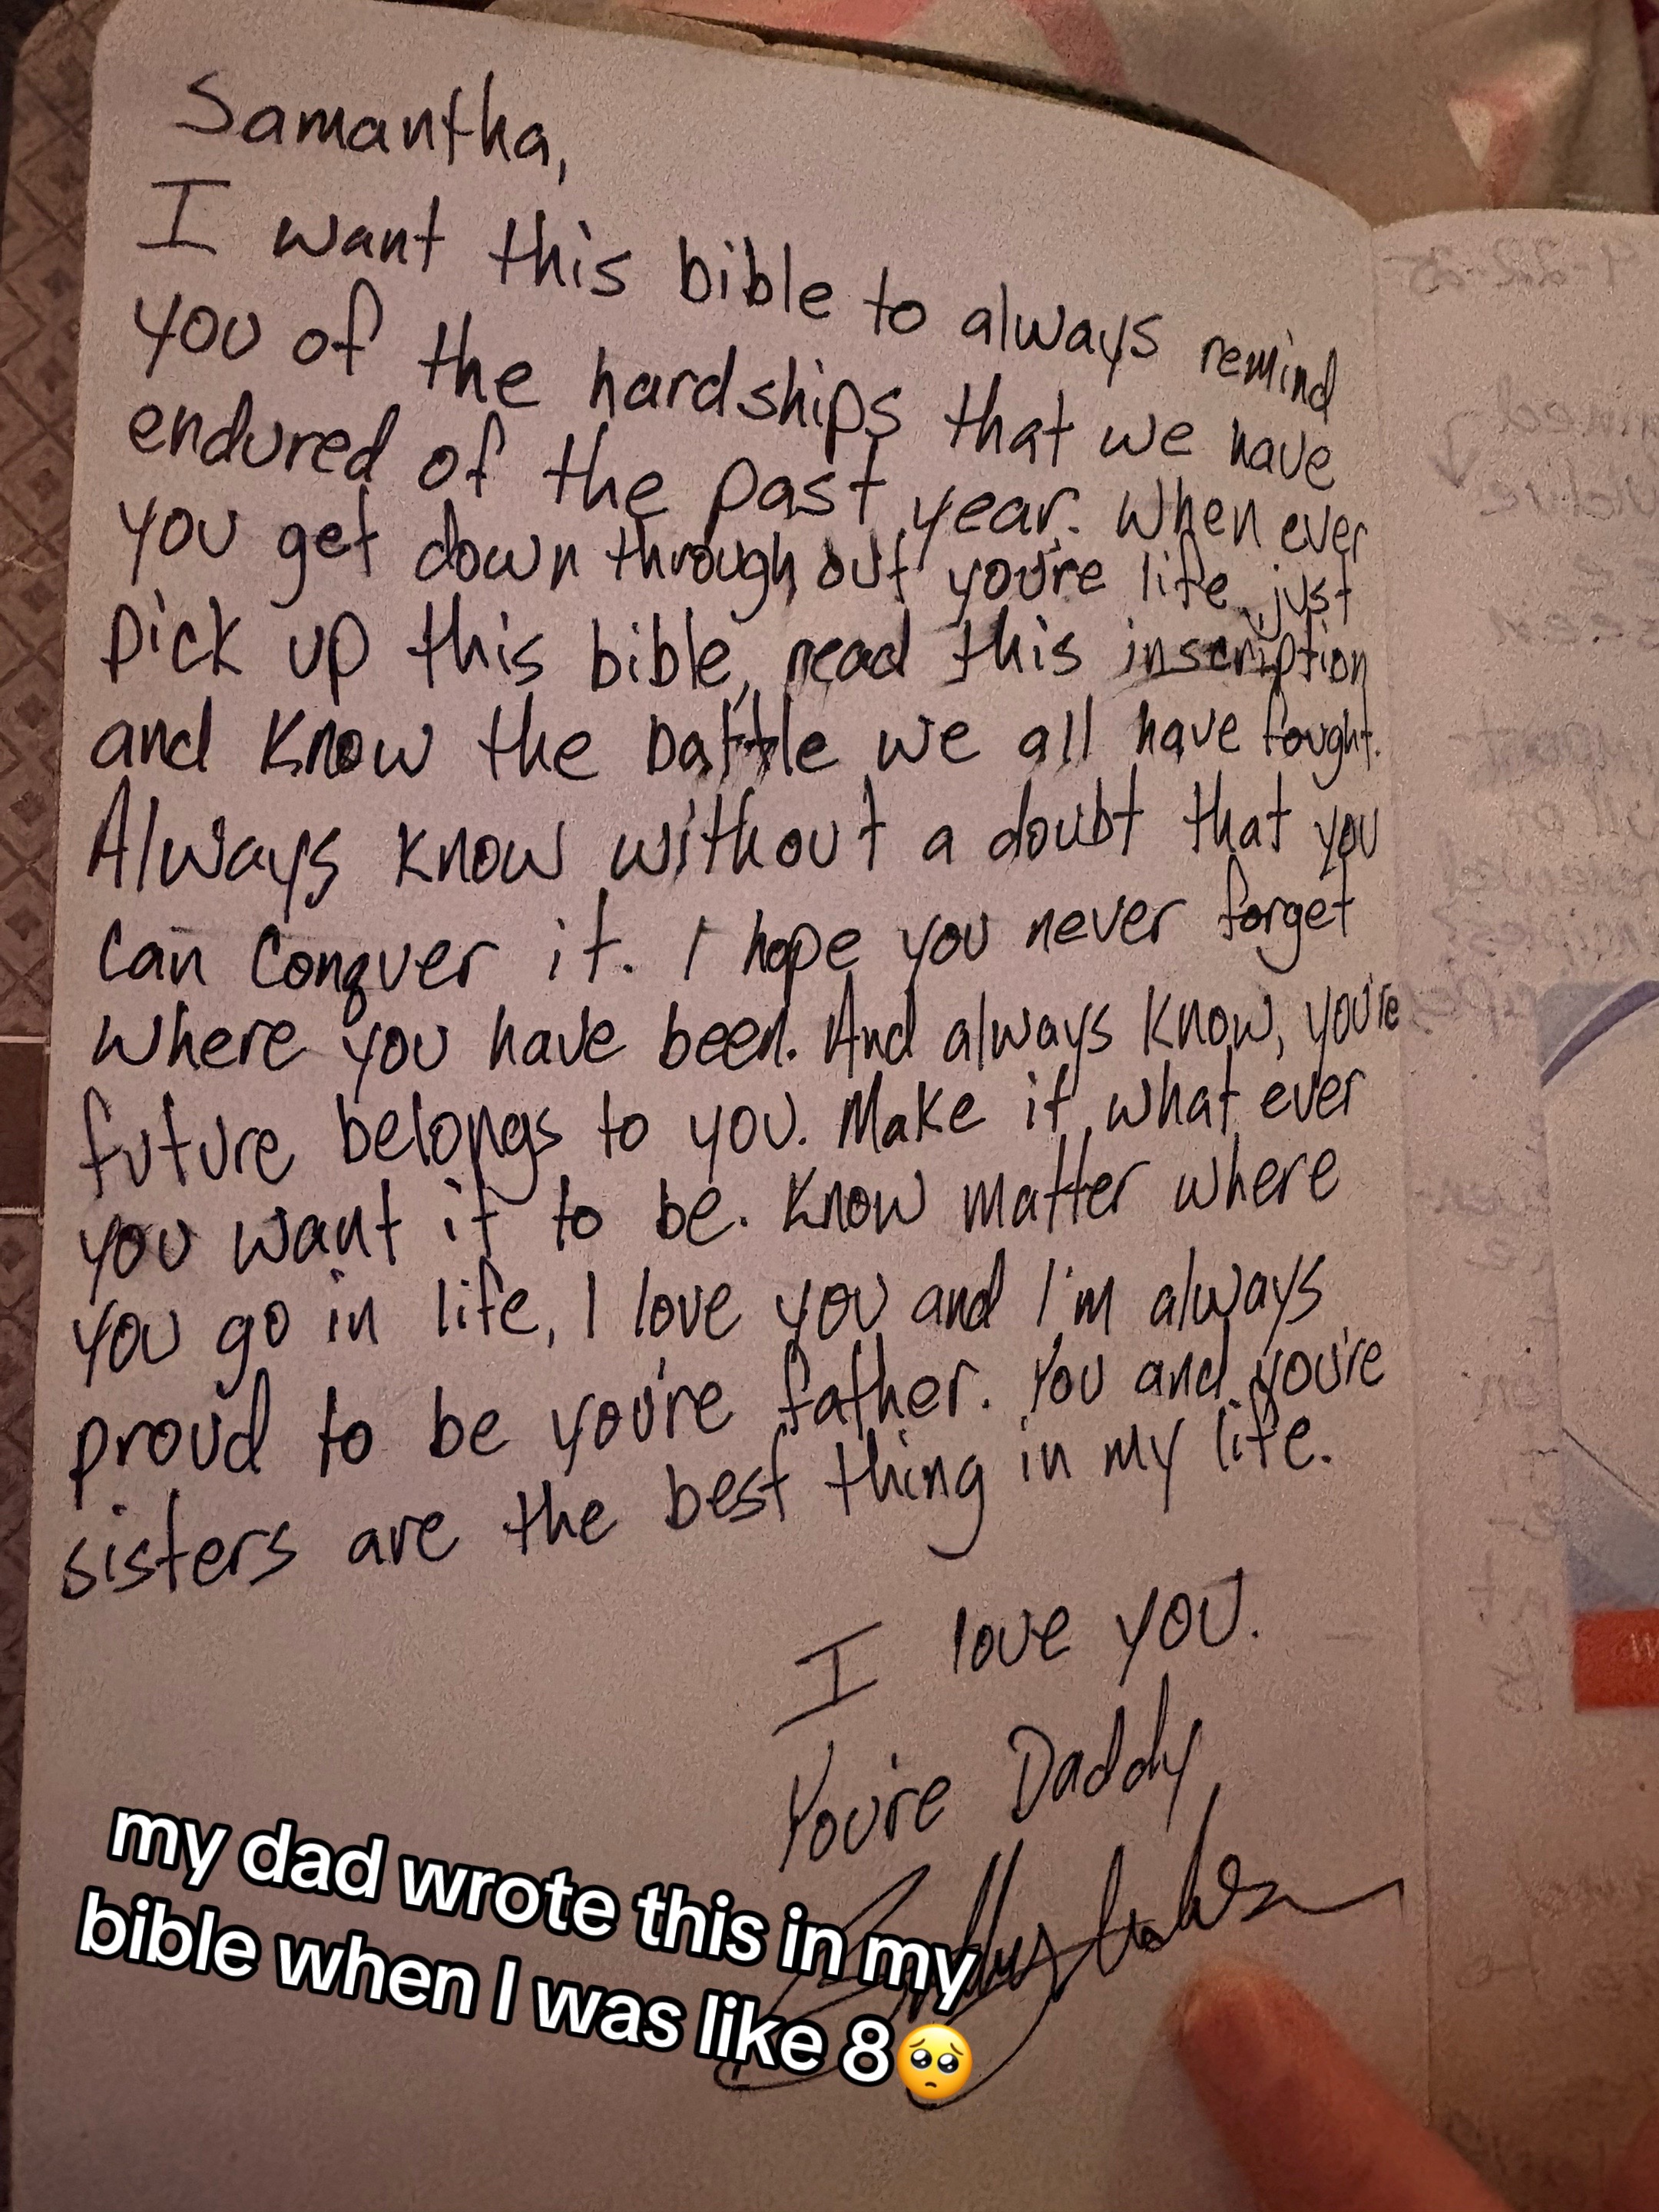 Samantha,
I want this bible to always remind
you of the hardships that we have
endured of the past year. When ever
you get down through out you're life, just
pick up this bible, read this inscription
and know the battle we all have fought.
Always know without a doubt that you
can conquer it. I hope you never forget
where you have been. And always know, you're
future belongs to you. Make it what ever
you want it to be. Know matter where
you go in life, I love you and I'm always
proud to be you're father. You and you're
sisters are the best thing in my life.
I love you.
You're Daddy,
my dad wrote this in my
bible when I was like 8🥺